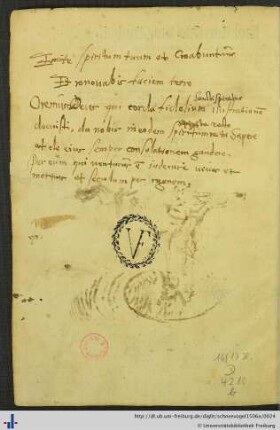 Emitte spiritum tuum et Creabuntur
Et renovabis faciem terre
Oremus Deus qui corda fidelium sancti spiritus illustratione
docuisti, da nobis in eodem spiritu recta sapere
et de eius semper consolatione gaudere
per eum qui venturus est iudicare vivos et
mortuos et seculum per ignem
VF
D
4210
b
http://dl.ub.uni-freiburg.de/diglit/schneevogel1536a/0024
© Universitätsbibliothek Freiburg